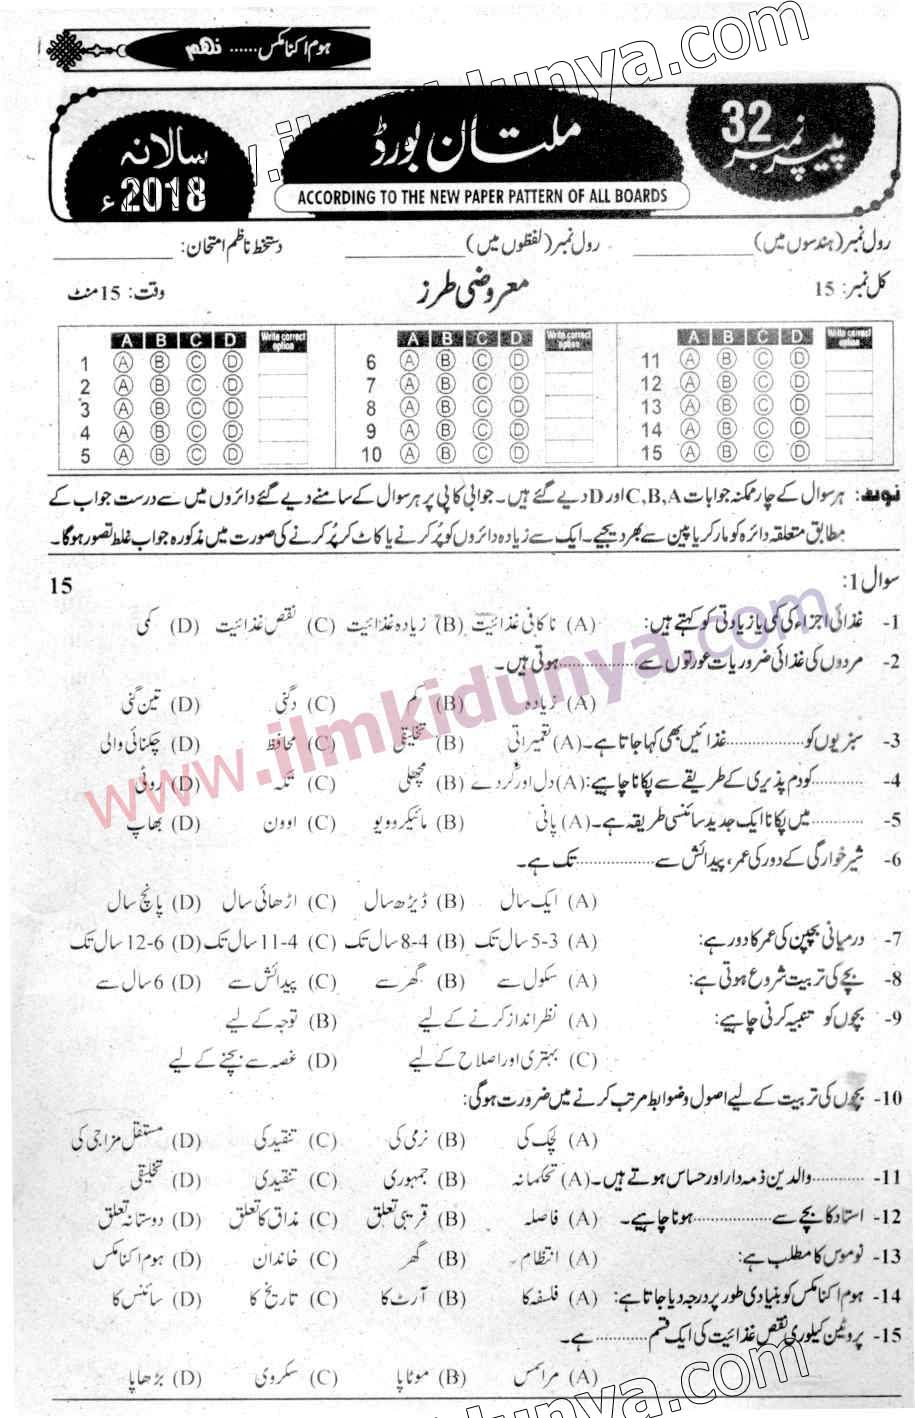 ہوم اکنامکس ...... نہم
پیپر نمبر 32
ملتان بورڈ
سالانہ 2018ء
ACCORDING TO THE NEW PAPER PATTERN OF ALL BOARDS
رول نمبر (ہندسوں میں) ____________ رول نمبر (لفظوں میں) ____________ دستخط ناظم امتحان: ____________
کل نمبر: 15 معروضی طرز وقت: 15 منٹ
A B C D Write correct option A B C D Write correct option A B C D Write correct option
1 A B C D 6 A B C D 11 A B C D
2 A B C D 7 A B C D 12 A B C D
3 A B C D 8 A B C D 13 A B C D
4 A B C D 9 A B C D 14 A B C D
5 A B C D 10 A B C D 15 A B C D
نوٹ: ہر سوال کے چار ممکنہ جوابات C,B,A اور D دیے گئے ہیں۔ جوابی کاپی پر ہر سوال کے سامنے دیے گئے دائروں میں سے درست جواب کے
مطابق متعلقہ دائرہ کو مارکر یا پین سے بھر دیجیے۔ ایک سے زیادہ دائروں کو پُر کرنے یا کاٹ کر پُر کرنے کی صورت میں مذکورہ جواب غلط تصور ہوگا۔
سوال 1: 15
1- غذائی اجزاء کی کمی یا زیادتی کو کہتے ہیں: (A) ناکافی غذائیت (B) زیادہ غذائیت (C) نقص غذائیت (D) کمی
2- مردوں کی غذائی ضروریات عورتوں سے ............ ہوتی ہیں۔
(A) زیادہ (B) کم (C) دگنی (D) تین گنی
3- سبزیوں کو ............ غذائیں بھی کہا جاتا ہے۔ (A) تعمیراتی (B) تخلیقی (C) محافظ (D) چکنائی والی
4- ............ کو دم پذیری کے طریقے سے پکانا چاہیے: (A) دل اور گردے (B) مچھلی (C) تکہ (D) روٹی
5- ............ میں پکانا ایک جدید سائنسی طریقہ ہے۔ (A) پانی (B) مائیکروویو (C) اوون (D) بھاپ
6- شیر خوارگی کے دور کی عمر، پیدائش سے ............ تک ہے۔
(A) ایک سال (B) ڈیڑھ سال (C) اڑھائی سال (D) پانچ سال
7- درمیانی بچپن کی عمر کا دور ہے: (A) 5-3 سال تک (B) 8-4 سال تک (C) 11-4 سال تک (D) 12-6 سال تک
8- بچے کی تربیت شروع ہوتی ہے: (A) سکول سے (B) گھر سے (C) پیدائش سے (D) 6 سال سے
9- بچوں کو تنبیہ کرنی چاہیے: (A) نظر انداز کرنے کے لیے (B) توجہ کے لیے
(C) بہتری اور اصلاح کے لیے (D) غصہ سے بچنے کے لیے
10- بچوں کی تربیت کے لیے اصول و ضوابط مرتب کرنے میں ضرورت ہوگی:
(A) لچک کی (B) نرمی کی (C) تنقید کی (D) مستقل مزاجی کی
11- ............ والدین ذمہ دار اور حساس ہوتے ہیں۔ (A) تحکمانہ (B) جمہوری (C) تنقیدی (D) تخلیقی
12- استاد کا بچے سے ............ ہونا چاہیے۔ (A) فاصلہ (B) قریبی تعلق (C) مذاق کا تعلق (D) دوستانہ تعلق
13- نوموس کا مطلب ہے: (A) انتظام (B) گھر (C) خاندان (D) ہوم اکنامکس
14- ہوم اکنامکس کو بنیادی طور پر درجہ دیا جاتا ہے: (A) فلسفہ کا (B) آرٹ کا (C) تاریخ کا (D) سائنس کا
15- پروٹین کیلوری نقص غذائیت کی ایک قسم ............ ہے۔
(A) مراسمس (B) موٹاپا (C) سکروی (D) بڑھاپا
www.ilmkidunya.com